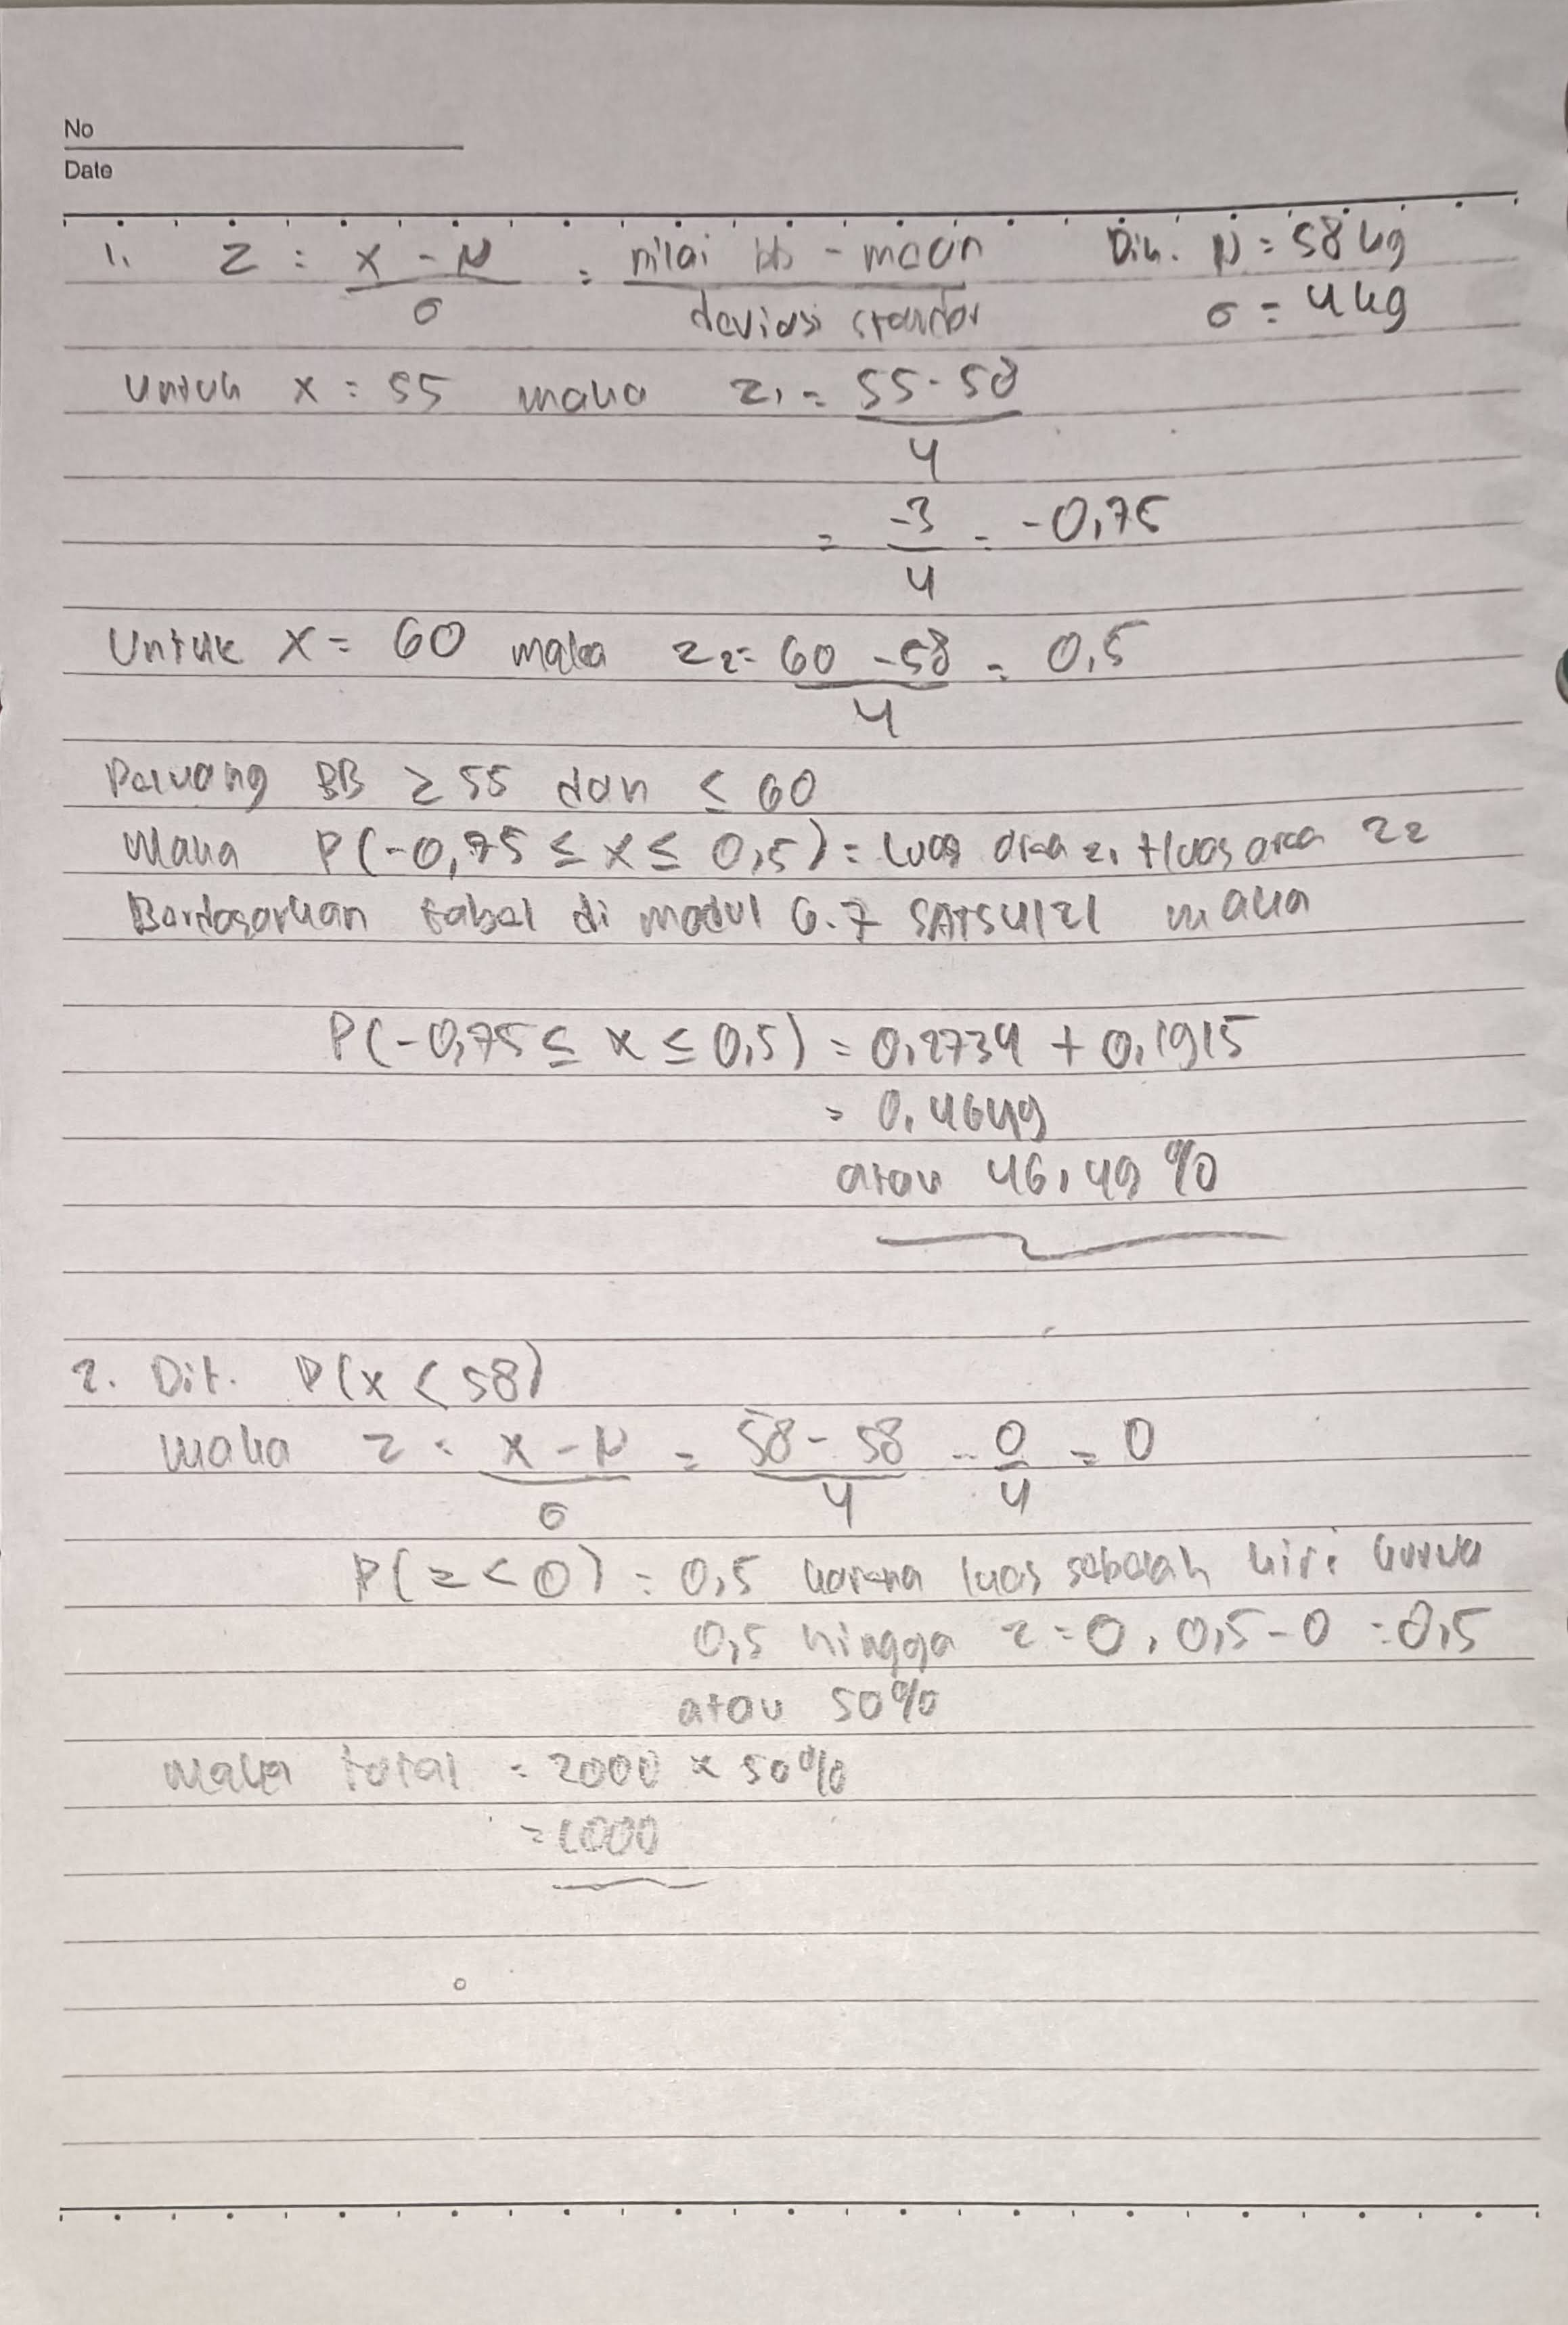 No
Date
1. z = x - μ / σ = nilai bb - mean / deviasi standar Dik. μ = 58 kg
σ = 4 kg
Untuk x = 55 maka z1 = 55 - 58 / 4
= -3 / 4 = -0,75
Untuk x = 60 maka z2 = 60 - 58 / 4 = 0,5
Peluang BB ≥ 55 dan ≤ 60
Maka P(-0,75 ≤ x ≤ 0,5) = luas area z1 + luas area z2
Berdasarkan tabel di modul 6.7 SATS4121 maka
P(-0,75 ≤ x ≤ 0,5) = 0,2734 + 0,1915
= 0,4649
atau 46,49 %
2. Dit. P(x < 58)
maka z = x - μ / σ = 58 - 58 / 4 = 0 / 4 = 0
P(z < 0) = 0,5 karena luas sebelah kiri kurva
0,5 hingga z = 0, 0,5 - 0 = 0,5
atau 50%
Maka total = 2000 x 50%
= 1000